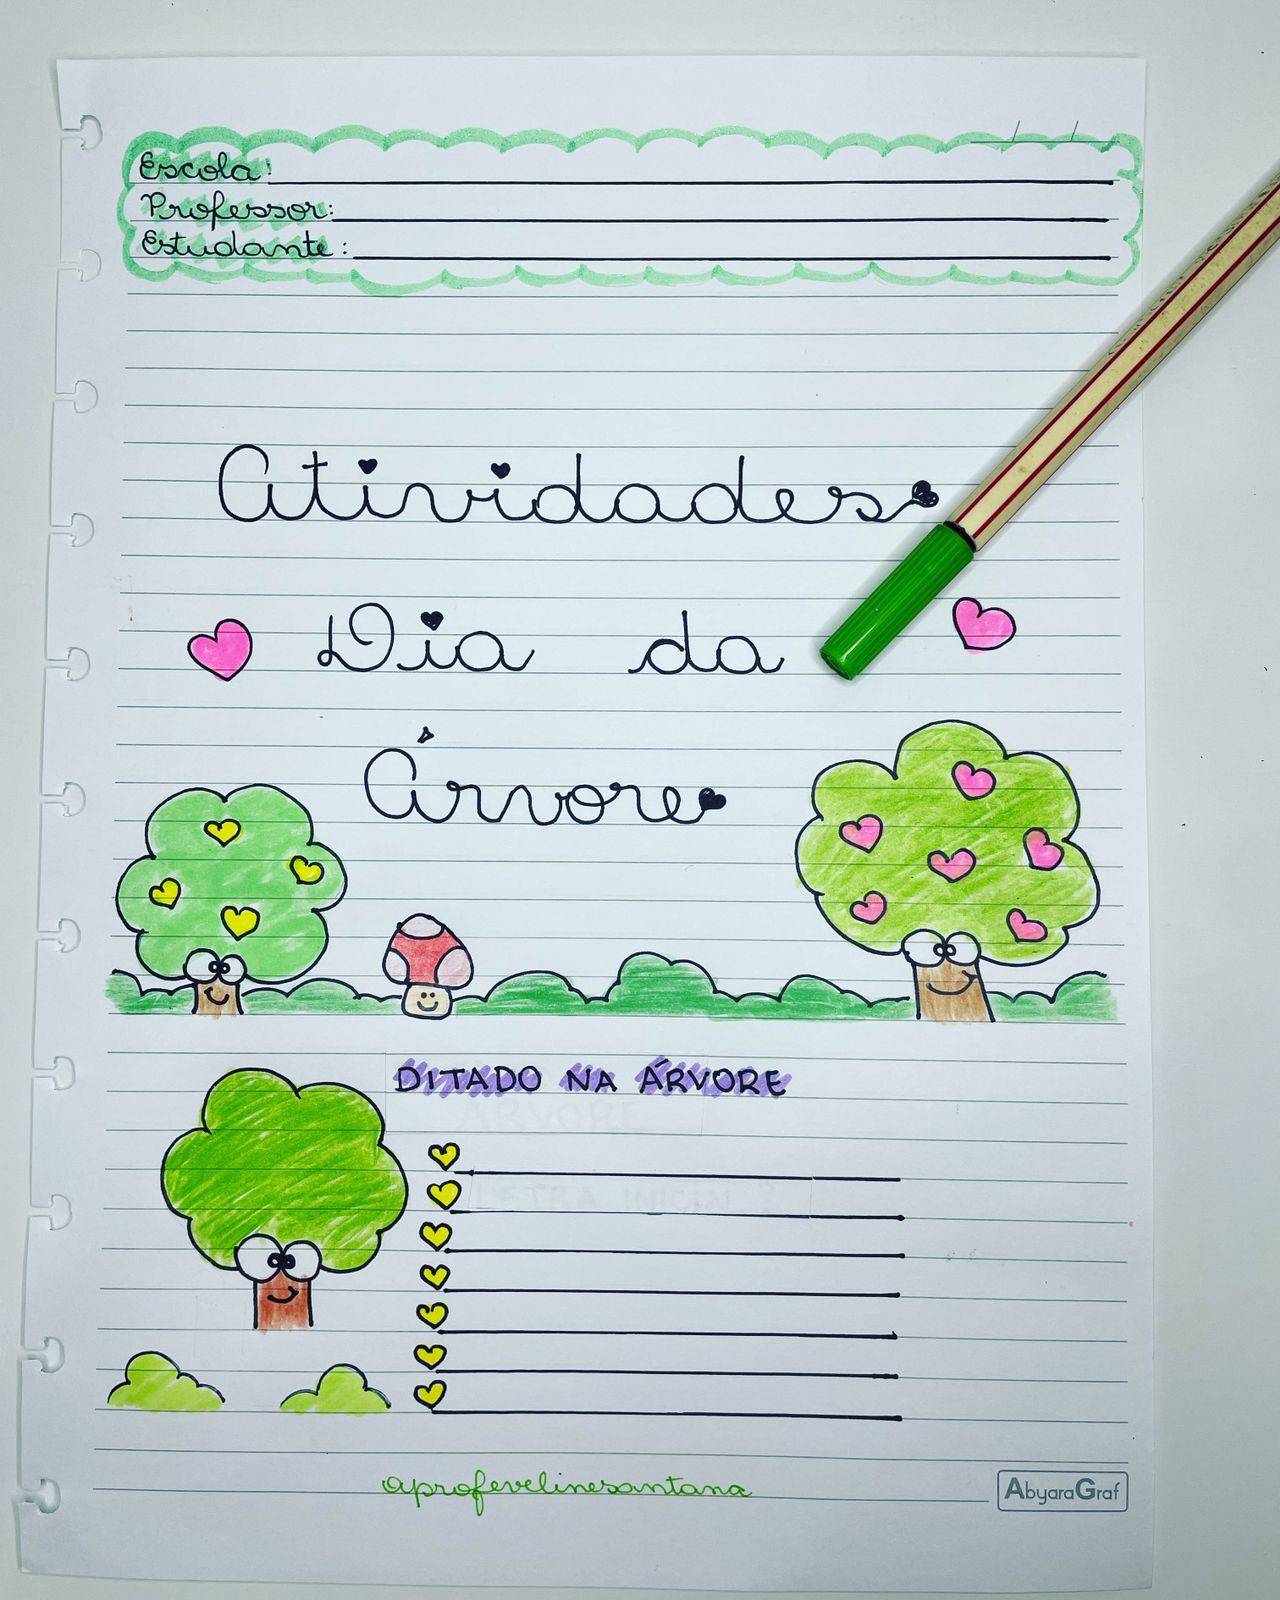 Escola:
Professor:
Estudante:
Atividades
Dia da
Árvore
DITADO NA ÁRVORE
ÁRVORE
LETRA INICIAL
aprofevelinesantana
AbyaraGraf